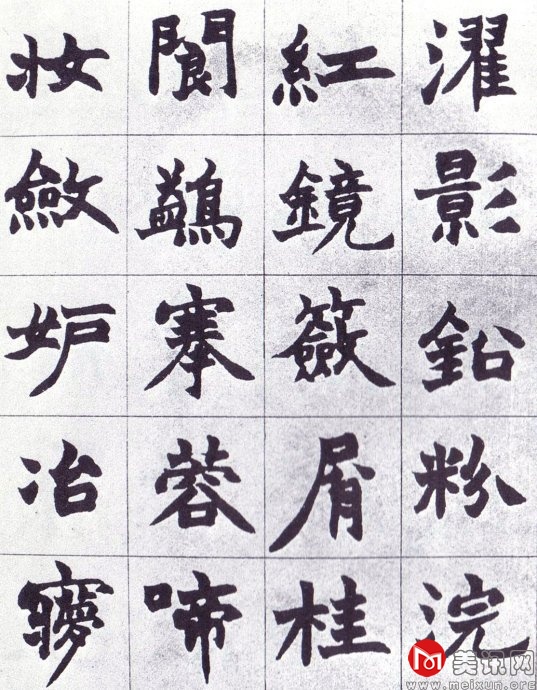 濯影鉛粉浣
紅鏡籢屑桂
閬鷁搴蓉啼
妝斂妒冶㝱
美讯网
www.meixun.org